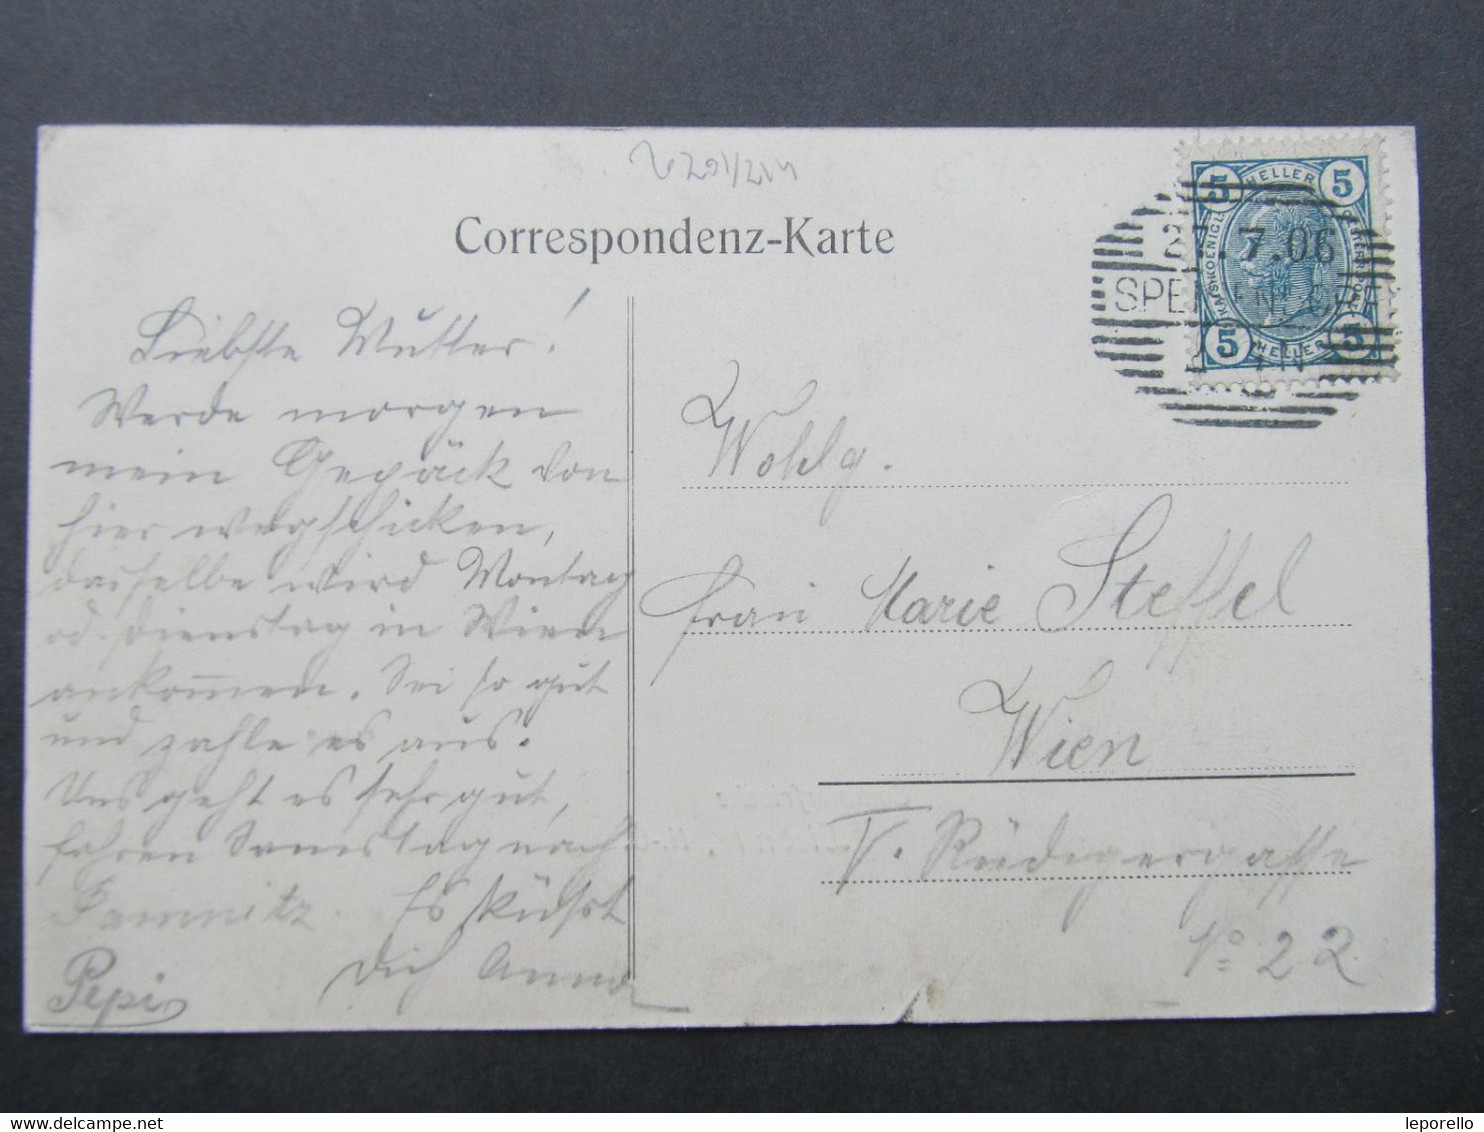 Correspondenz-Karte
5 HELLER 5
27.7.06
5 HELLER 5
Liebste Mutter!
Werde morgen
mein Gepäck von
hier wegschicken,
dasselbe wird Montag
od. Dienstag in Wien
ankom̅en. Sei so gut
und zahle es aus.
Uns geht es sehr gut,
fahren Samstag nach
Jamnitz. Es küsst
Dich Anna
Pepi
Wohlg.
Frau Marie Steffel
Wien
V. Rüdigergasse
No 22.
leporello